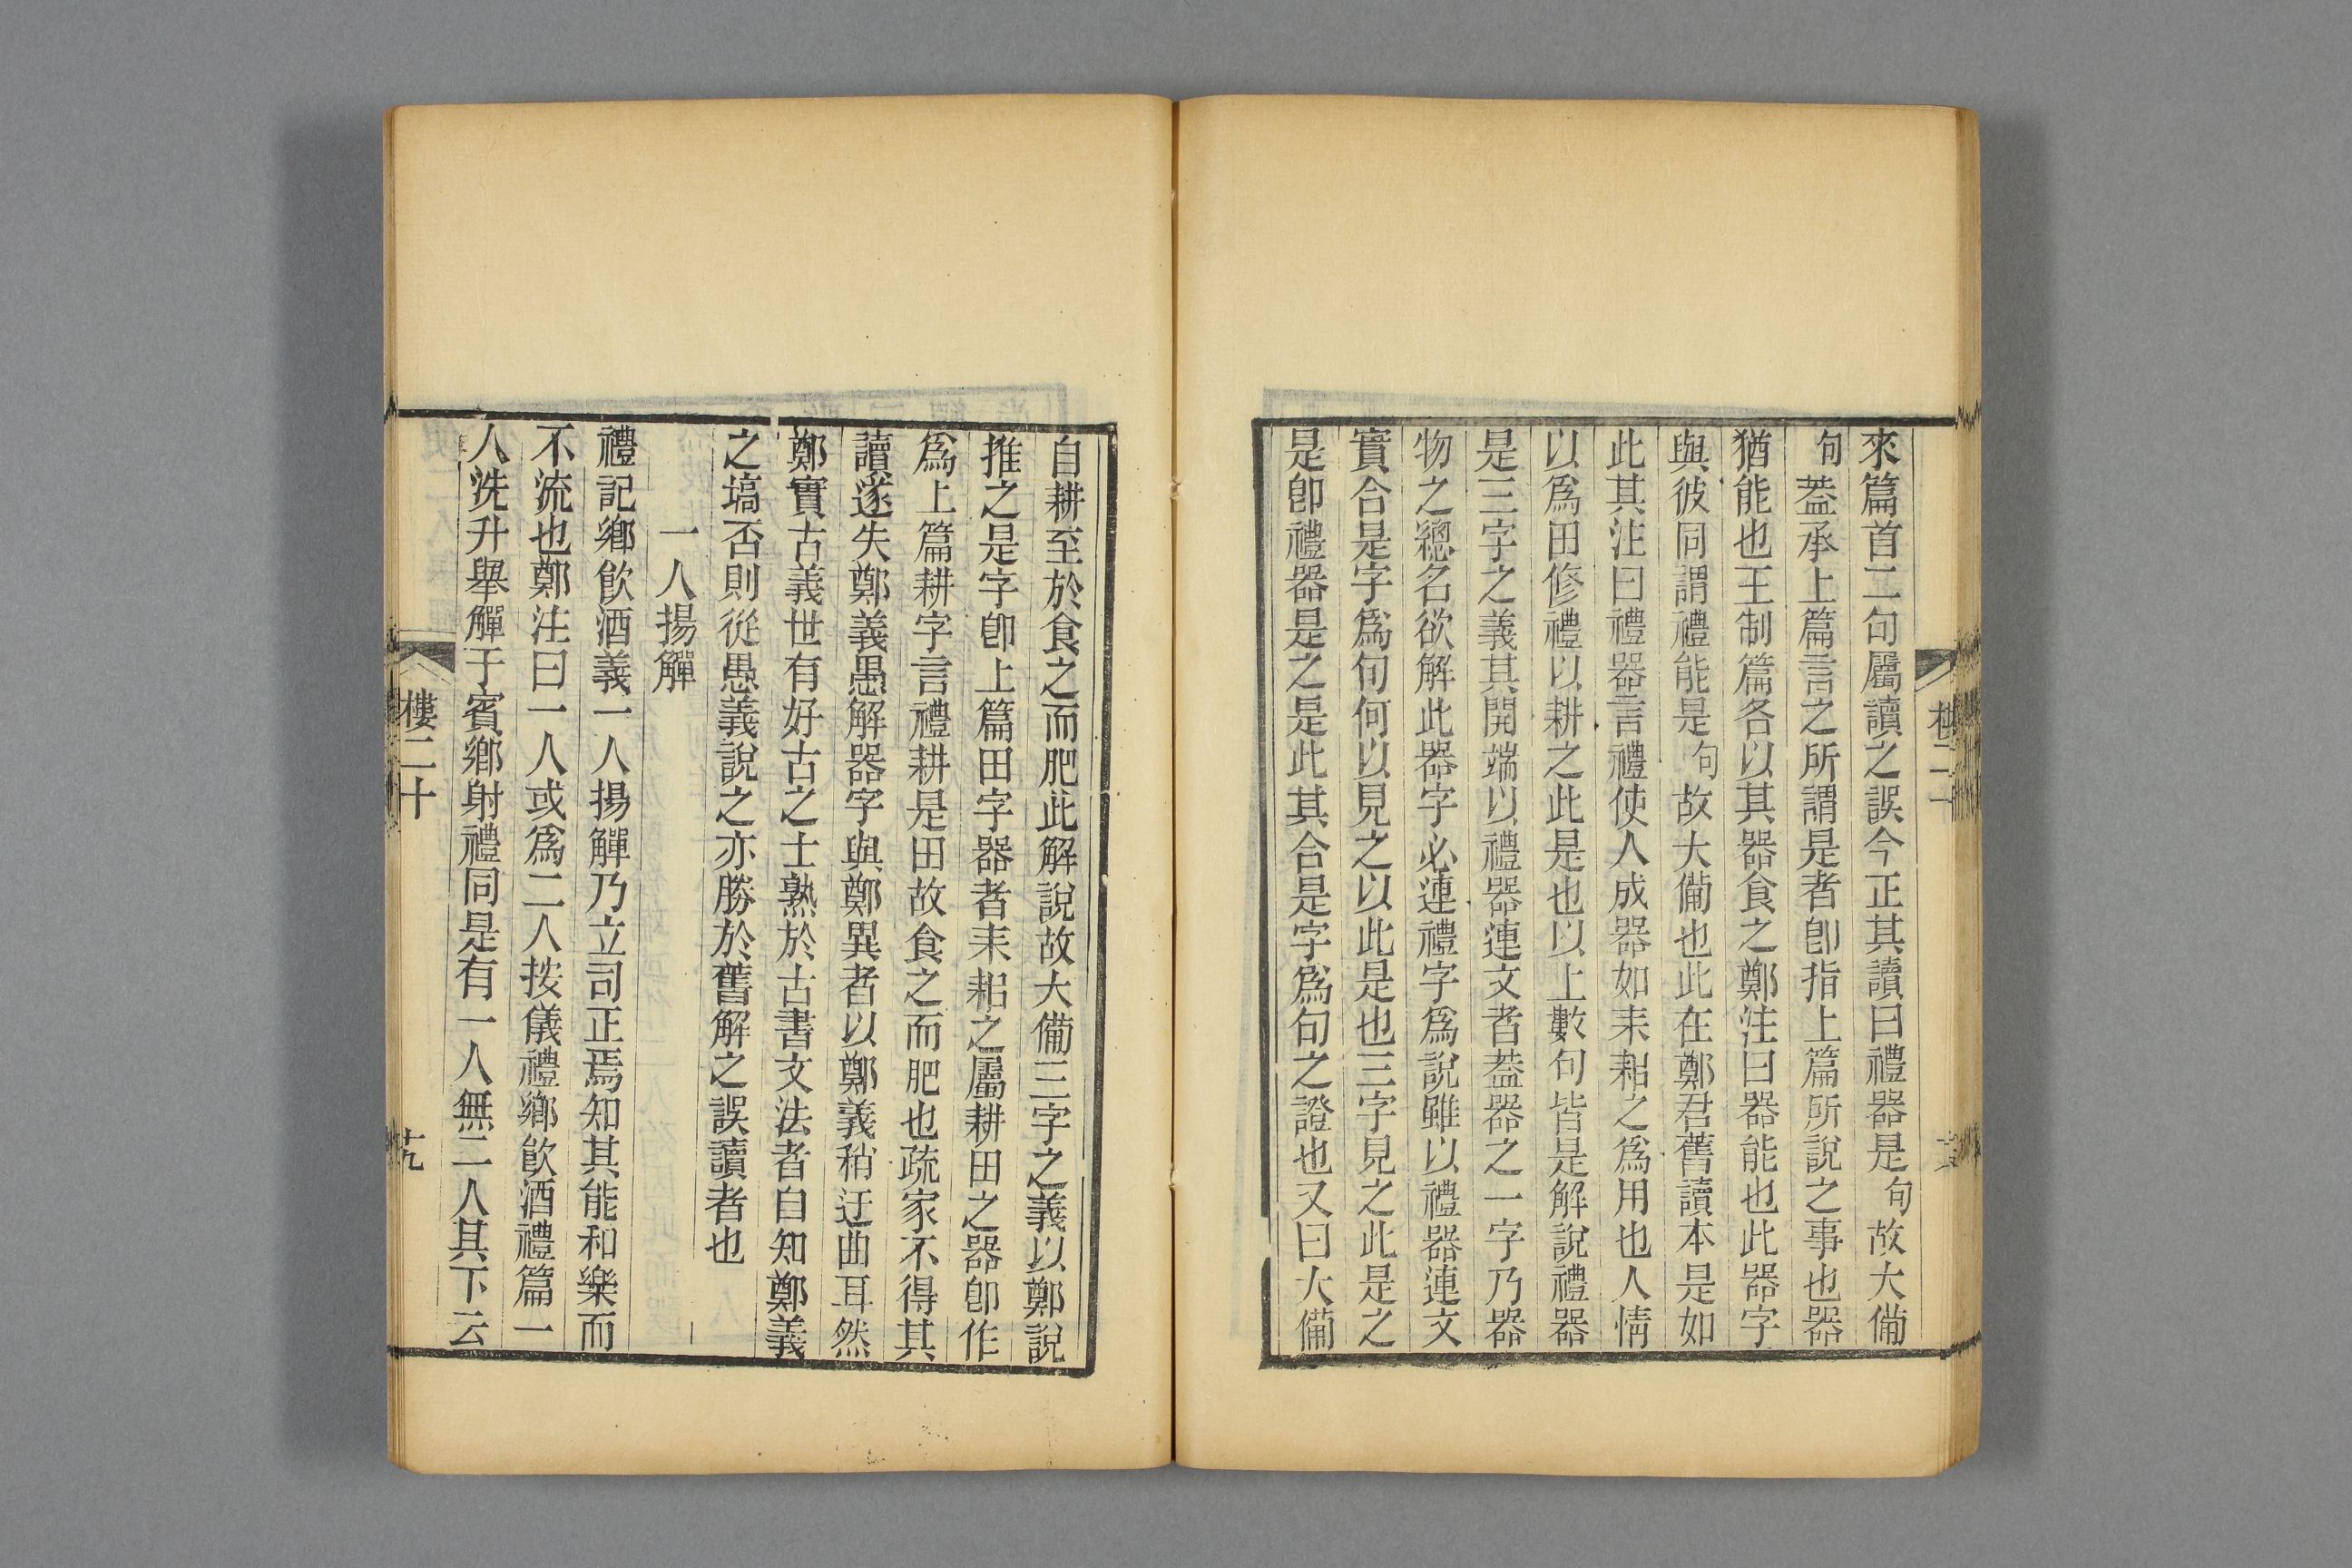 來篇首二句屬讀之誤今正其讀曰禮器是句故大備
句葢承上篇言之所謂是者卽指上篇所說之事也器
猶能也王制篇各以其器食之鄭注曰器能也此器字
與彼同謂禮能是句故大備也此在鄭君舊讀本是如
此其注曰禮器言禮使人成器如耒耜之爲用也人情
以爲田修禮以耕之此是也以上數句皆是解說禮器
是三字之義其開端以禮器連文者葢器之一字乃器
物之總名欲解此器字必連禮字爲說雖以禮器連文
實合是字爲句何以見之以此是也三字見之此是之
是卽禮器是之是此其合是字爲句之證也又曰大備
自耕至於食之而肥此解說故大備三字之義以鄭說
推之是字卽上篇田字器者耒耜之屬耕田之器卽作
爲上篇耕字言禮耕是田故食之而肥也疏家不得其
讀遂失鄭義愚解器字與鄭異者以鄭義稍迂曲耳然
鄭實古義世有好古之士熟於古書文法者自知鄭義
之塙否則從愚義說之亦勝於舊解之誤讀者也
一人揚觶
禮記鄉飮酒義一人揚觶乃立司正焉知其能和樂而
不流也鄭注曰一人或爲二人按儀禮鄉飮酒禮篇一
人洗升舉觶于賓鄉射禮同是有一人無二人其下云
樓二十